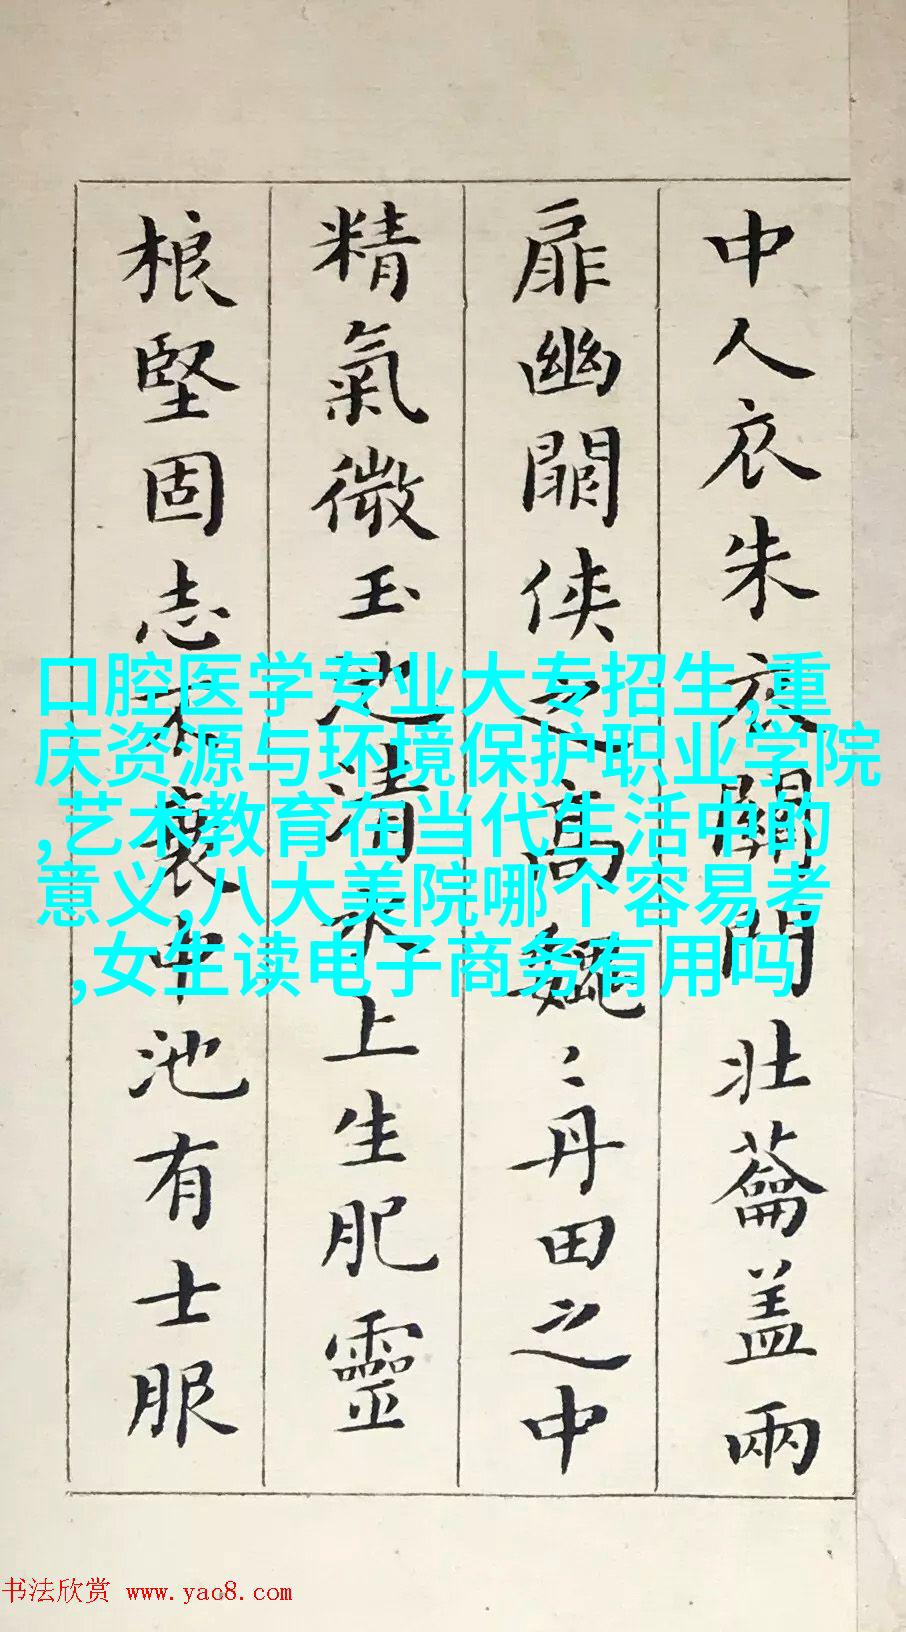 中人衣朱衣關門壯蘥盖兩
扉幽關侠之高魏〻丹田之中
精氣微玉池清水上生肥靈
根堅固志不衰中池有士服
口腔医学专业大专招生,重
庆资源与环境保护职业学院
,艺术教育在当代生活中的
意义,八大美院哪个容易考
,女生读电子商务有用吗
书法欣赏 www.yac8.com